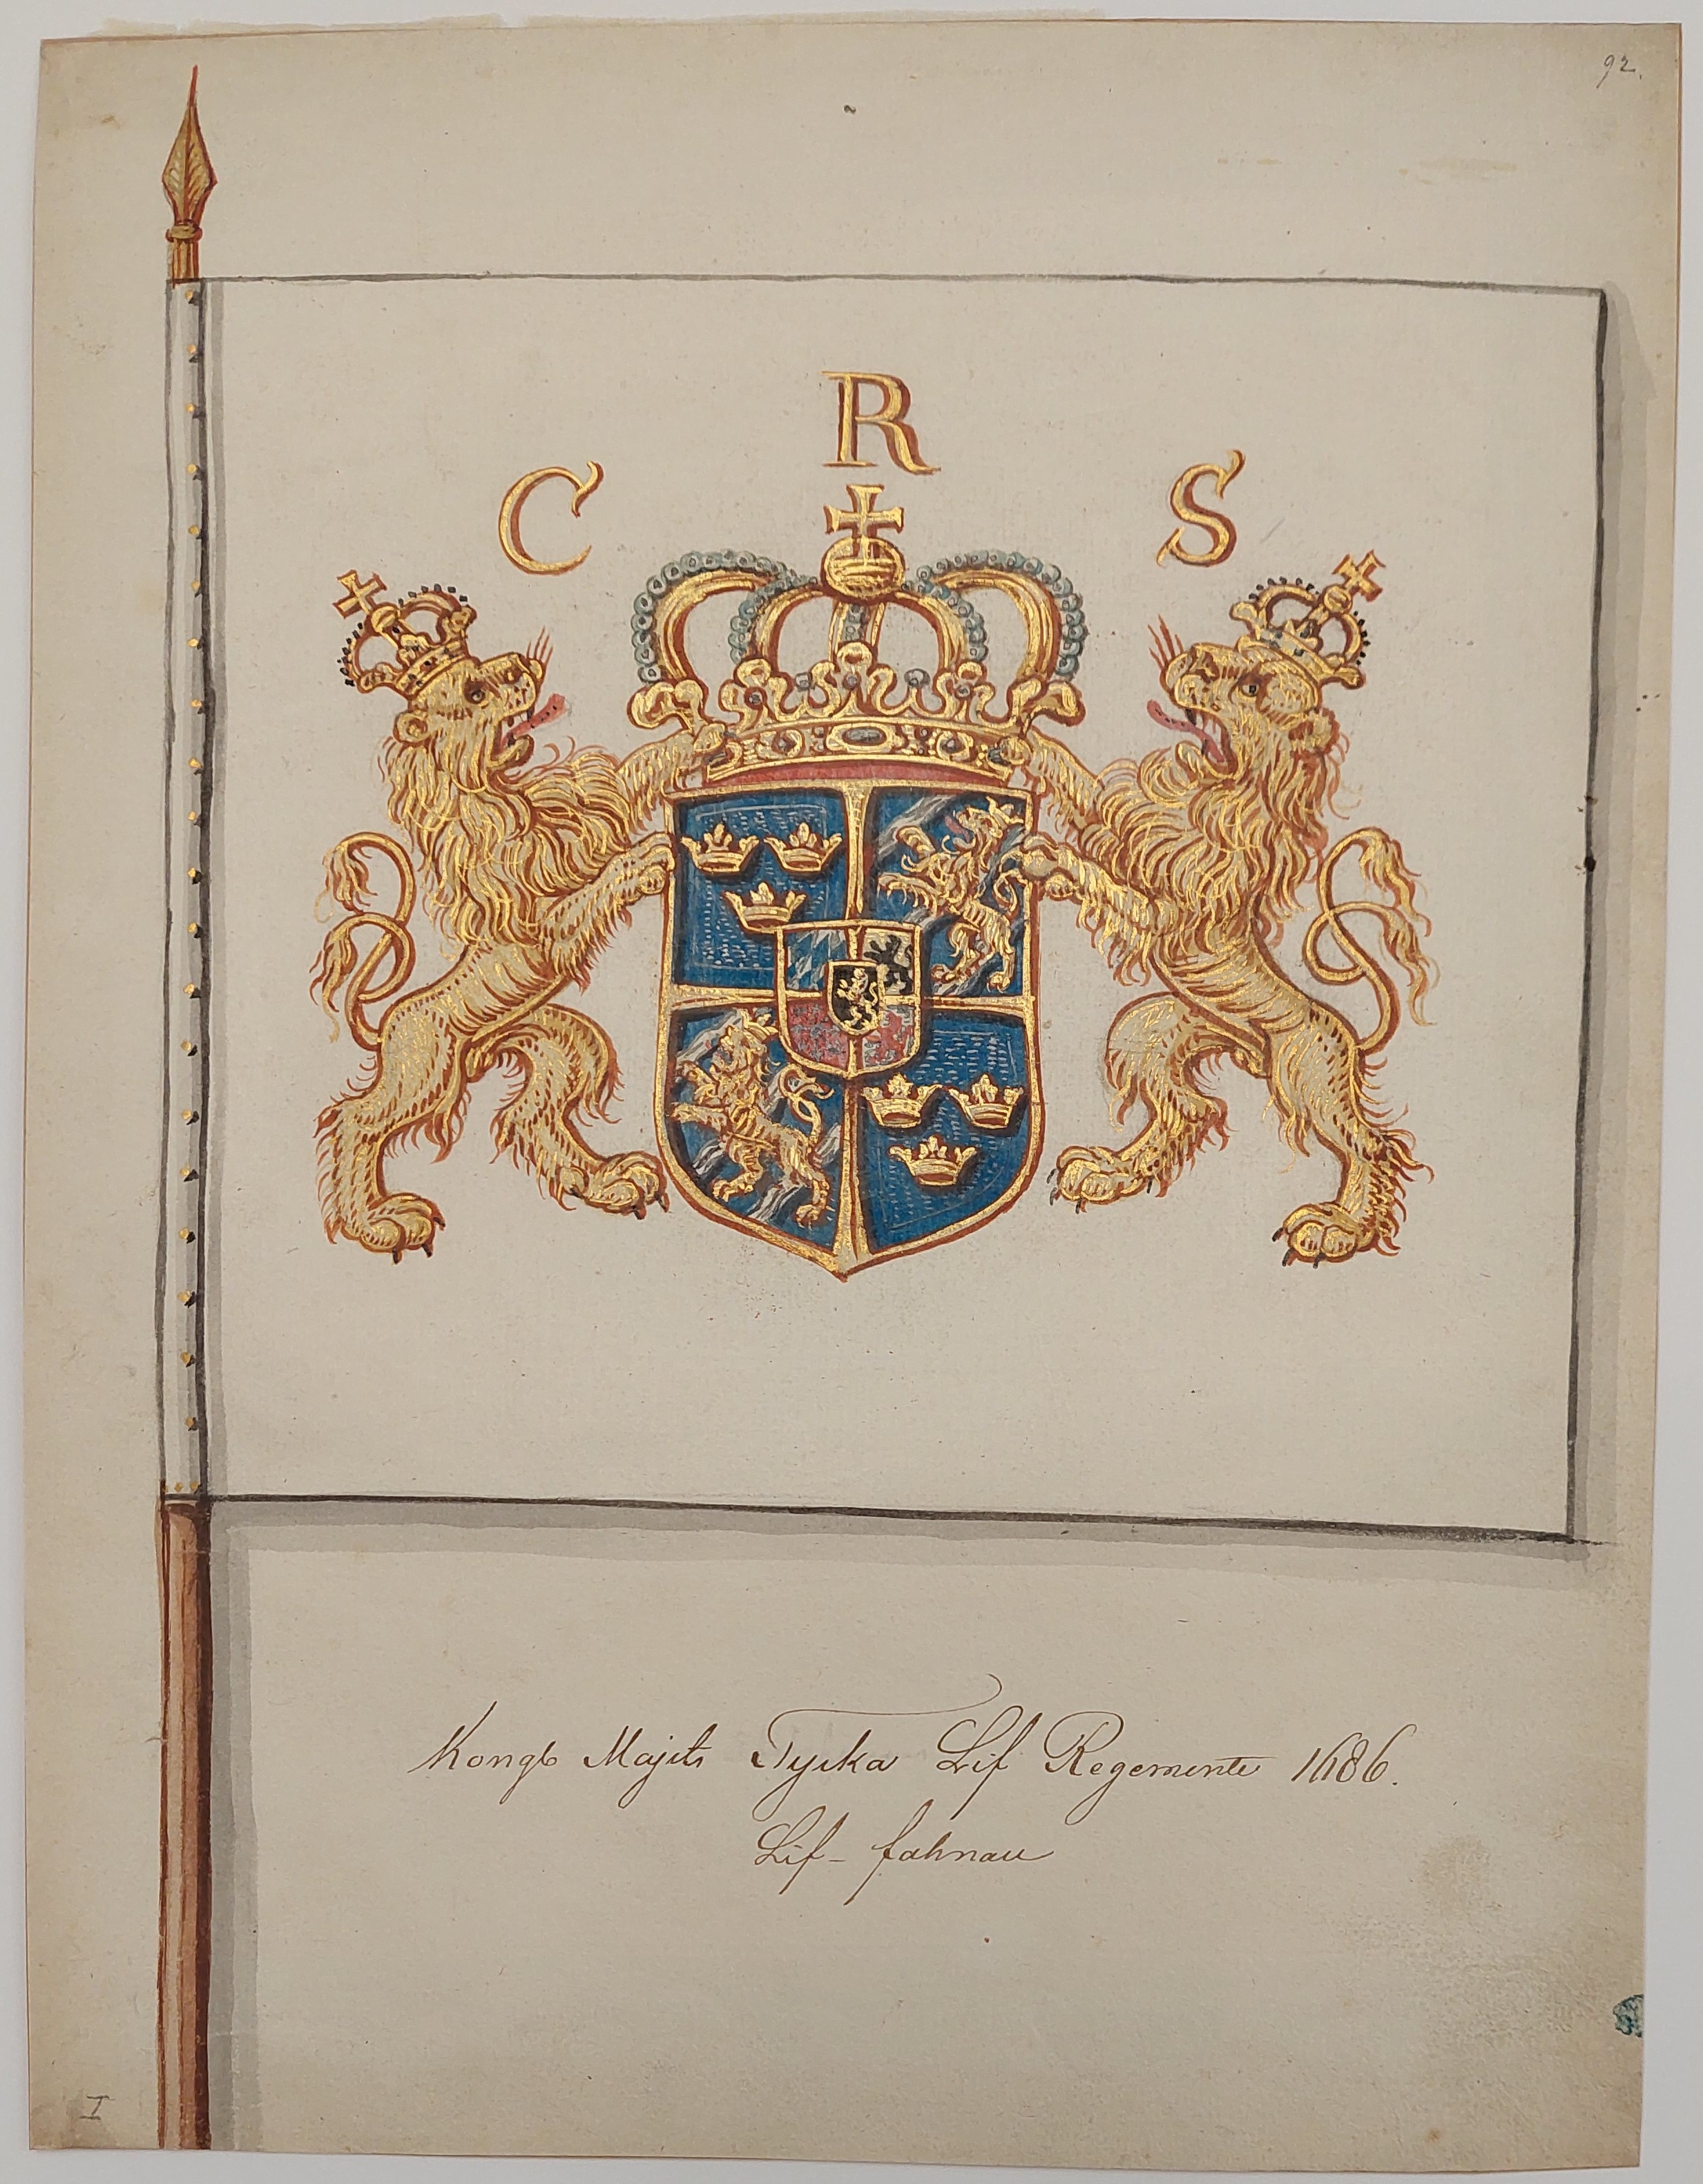 92.
R
C S
Kongl Majts Tyska Lif Regemente 1686.
Lif- fahnau
I